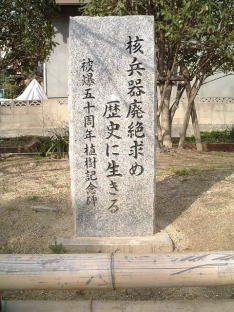 核兵器廃絶求め
歴史に生きる
被爆五十周年植樹記念碑